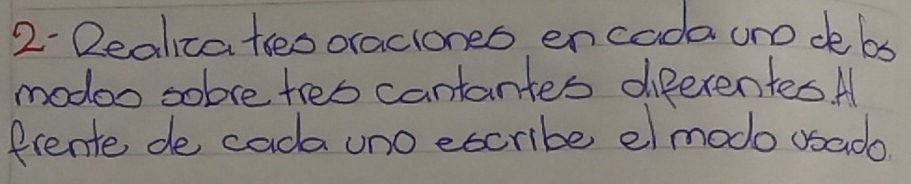 2- Realiza tres oraciones en cada uno de los
modos sobre tres cantantes diferentes. Al
frente de cada uno escribe el modo usado.